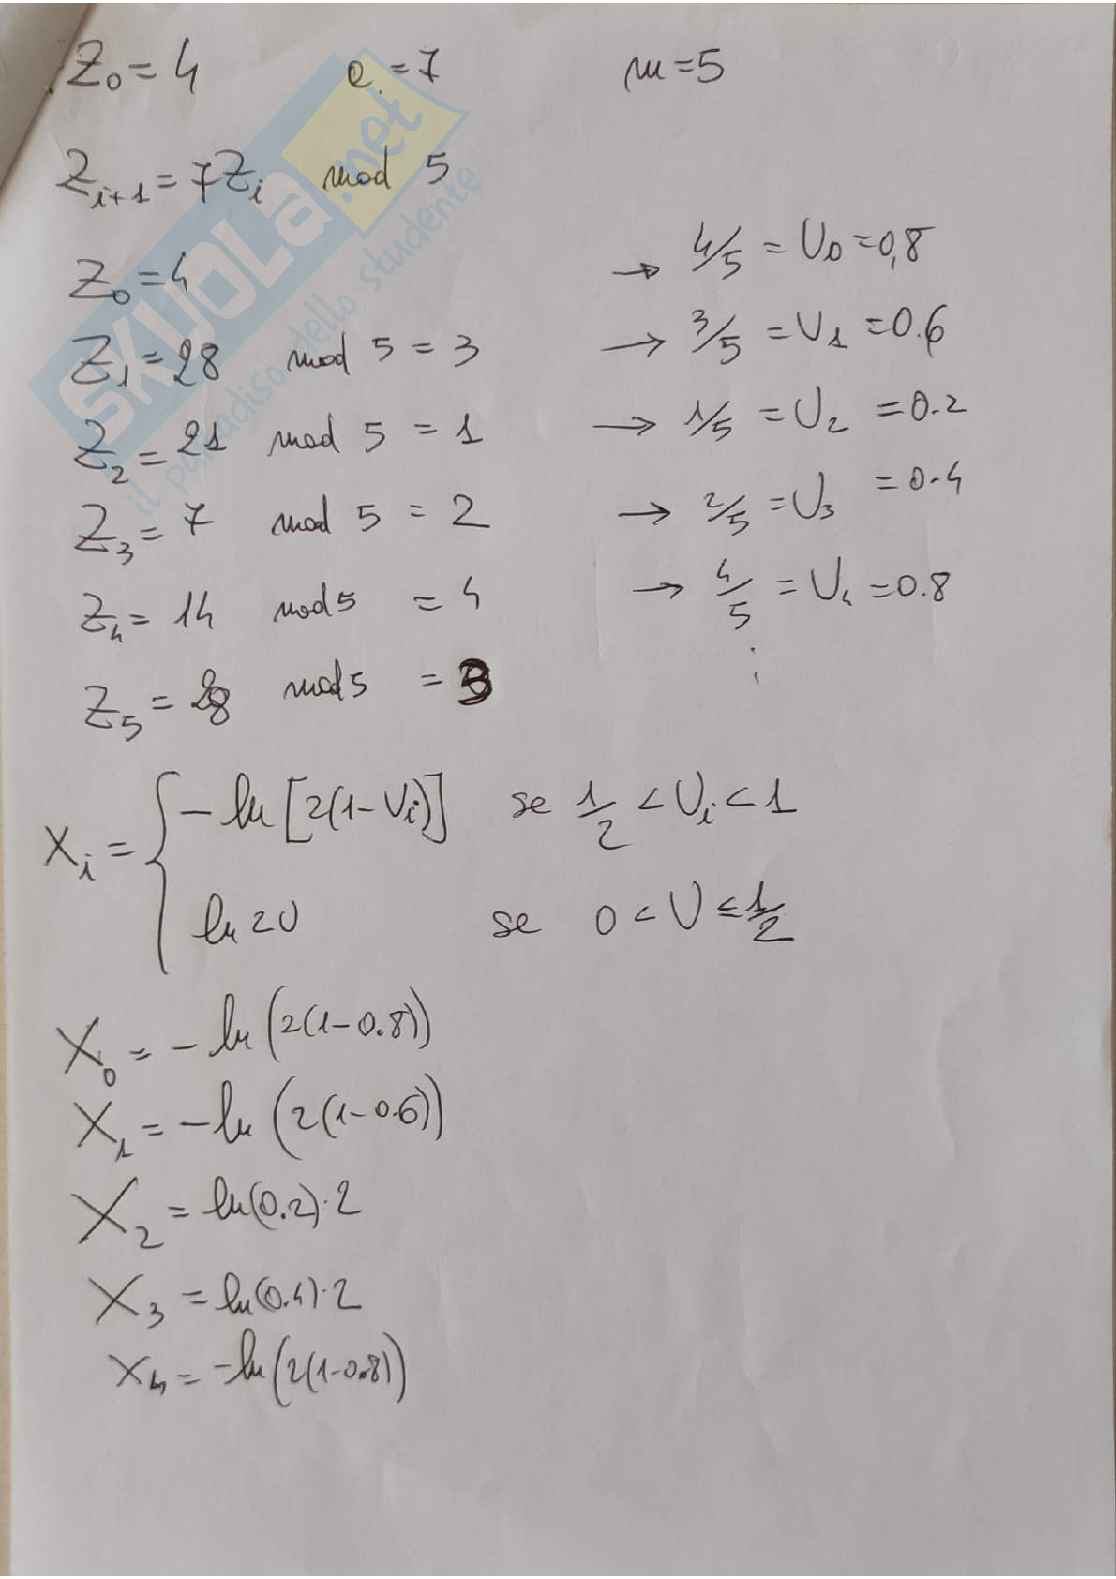 Z₀ = 4 a = 7 m = 5
Z_{i+1} = 7Z_i mod 5
Z₀ = 4 → 4/5 = U₀ = 0,8
Z₁ = 28 mod 5 = 3 → 3/5 = U₁ = 0.6
Z₂ = 21 mod 5 = 1 → 1/5 = U₂ = 0.2
Z₃ = 7 mod 5 = 2 → 2/5 = U₃ = 0.4
Z₄ = 14 mod 5 = 4 → 4/5 = U₄ = 0.8
⋮
Z₅ = 28 mod 5 = 3
X_i = { -ln [2(1-U_i)] se 1/2 < U_i < 1
ln 2U se 0 < U ≤ 1/2
X₀ = -ln (2(1-0.8))
X₁ = -ln (2(1-0.6))
X₂ = ln(0.2)·2
X₃ = ln(0.4)·2
X₄ = -ln(2(1-0.8))
SKUOLA.net
il paradiso dello studente